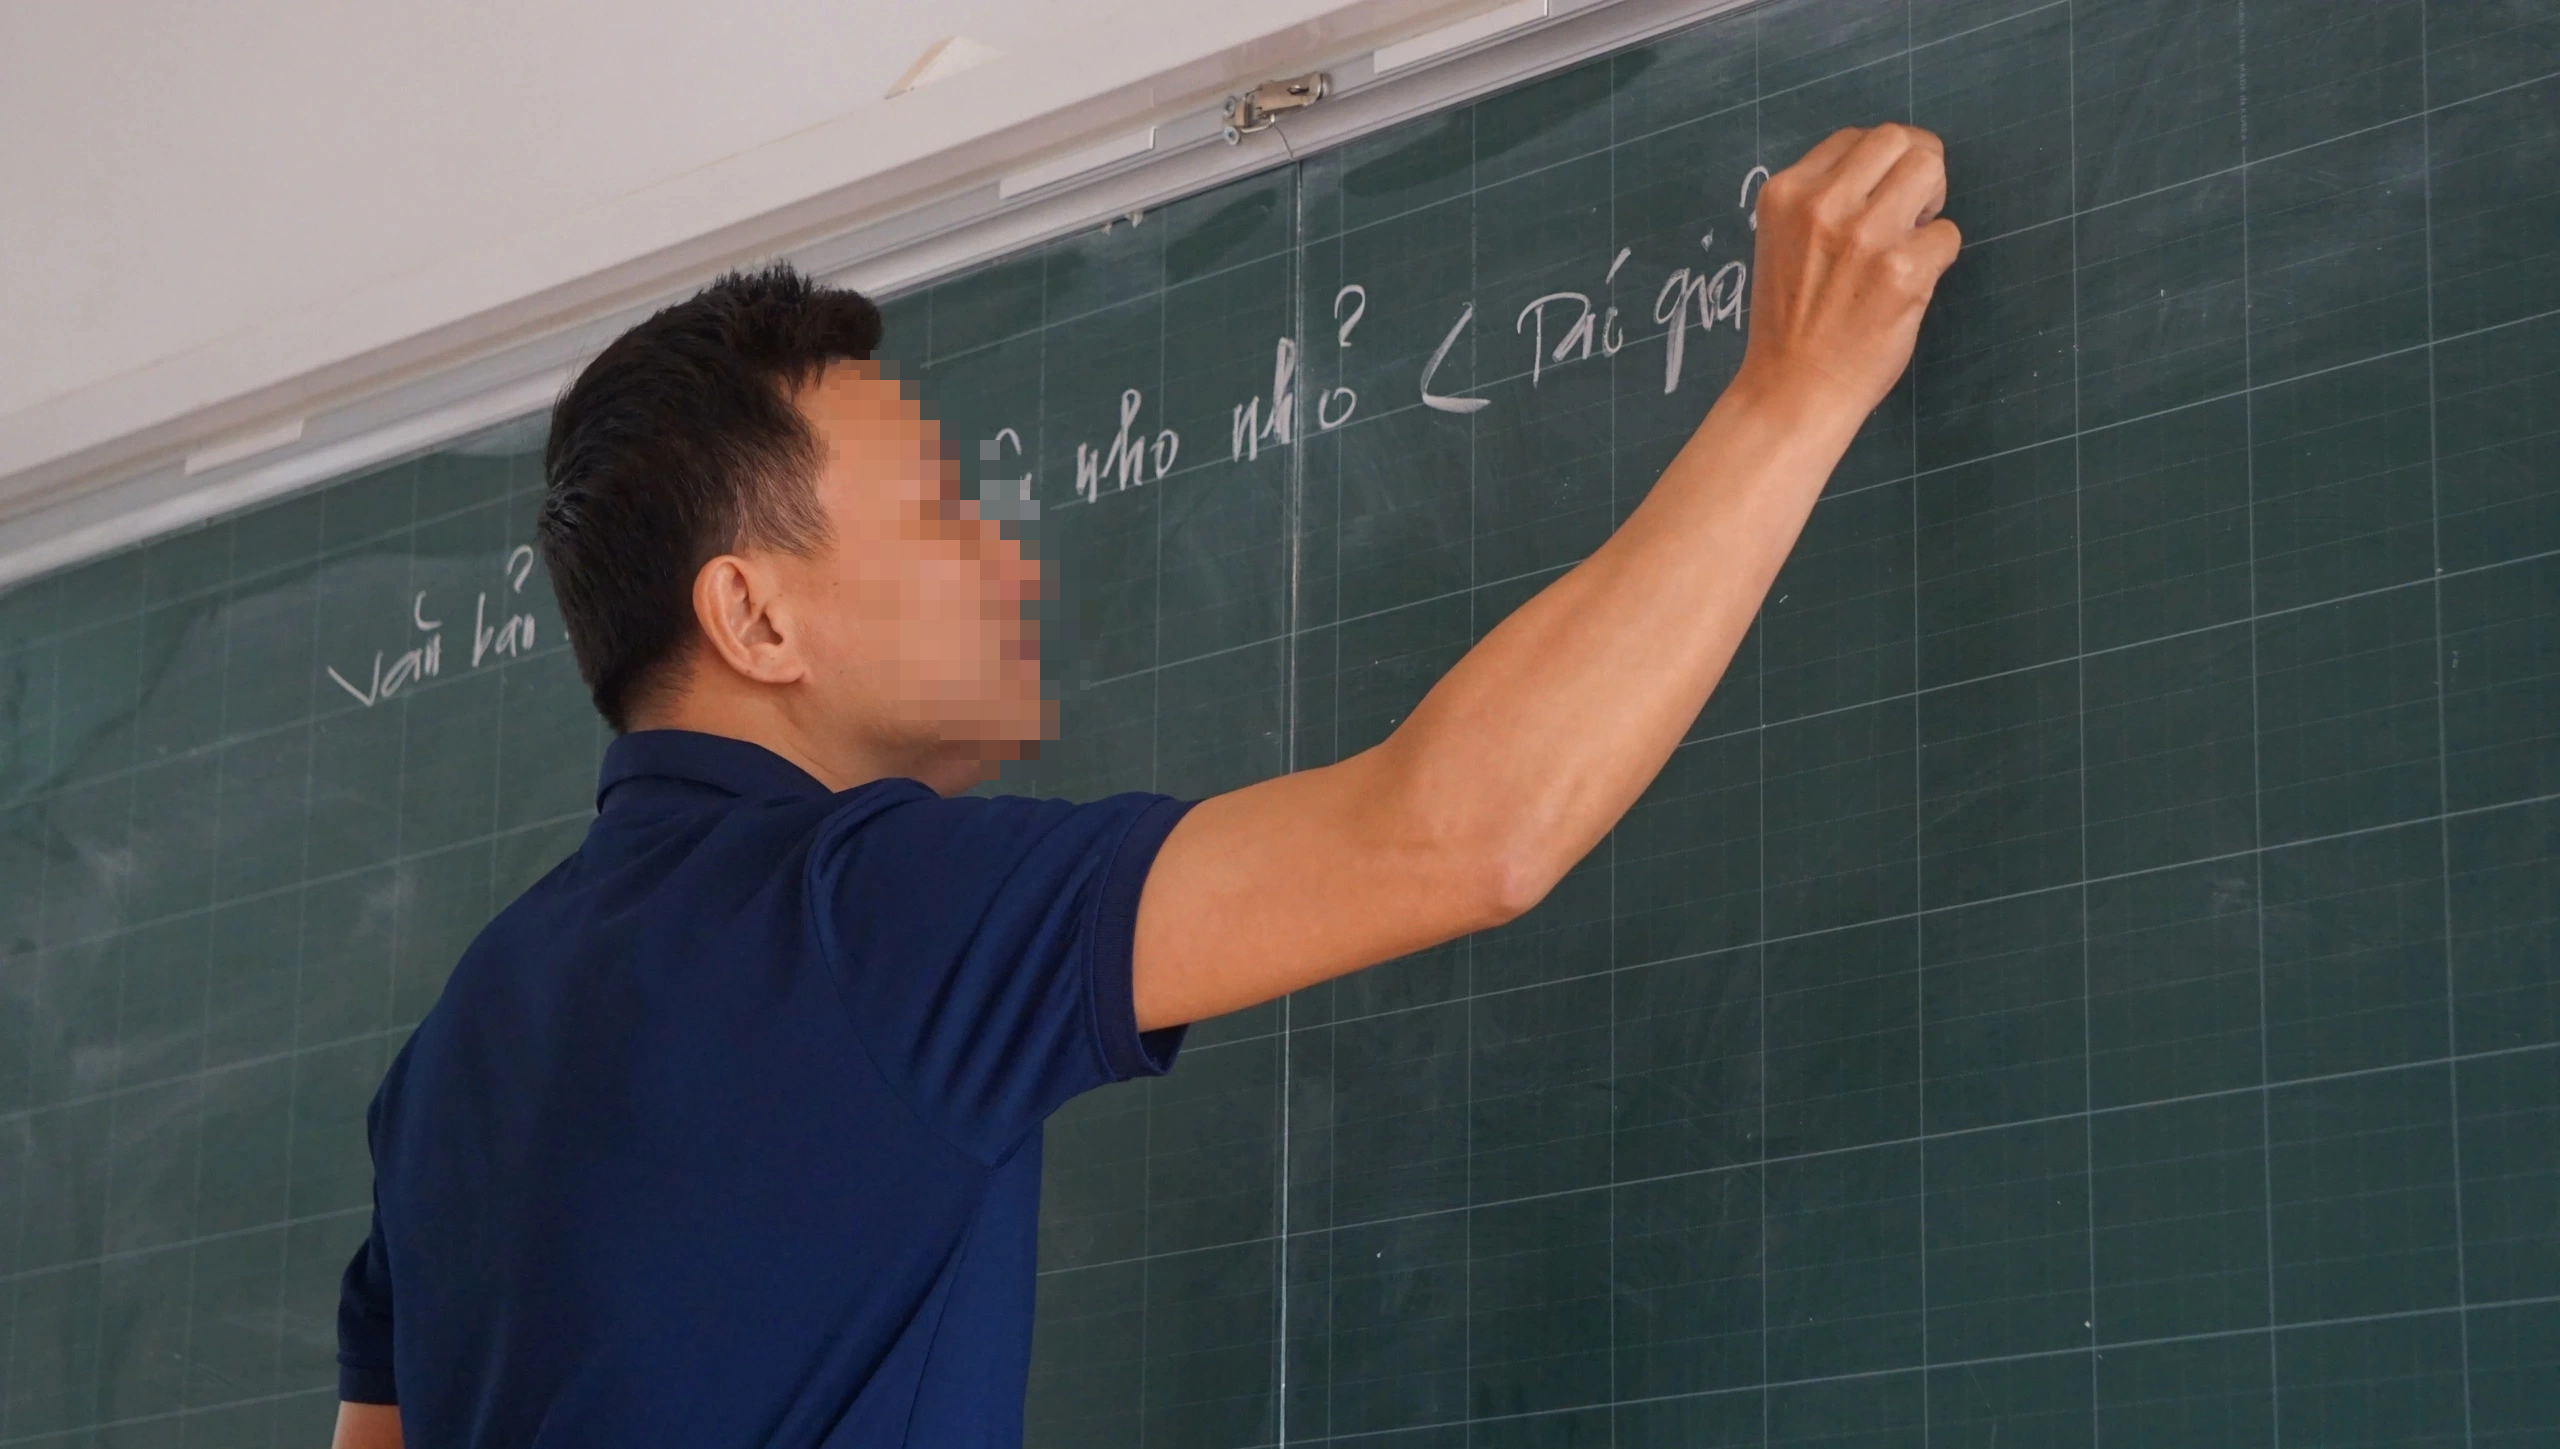 Văn bản nho nhỏ ( Tác giả